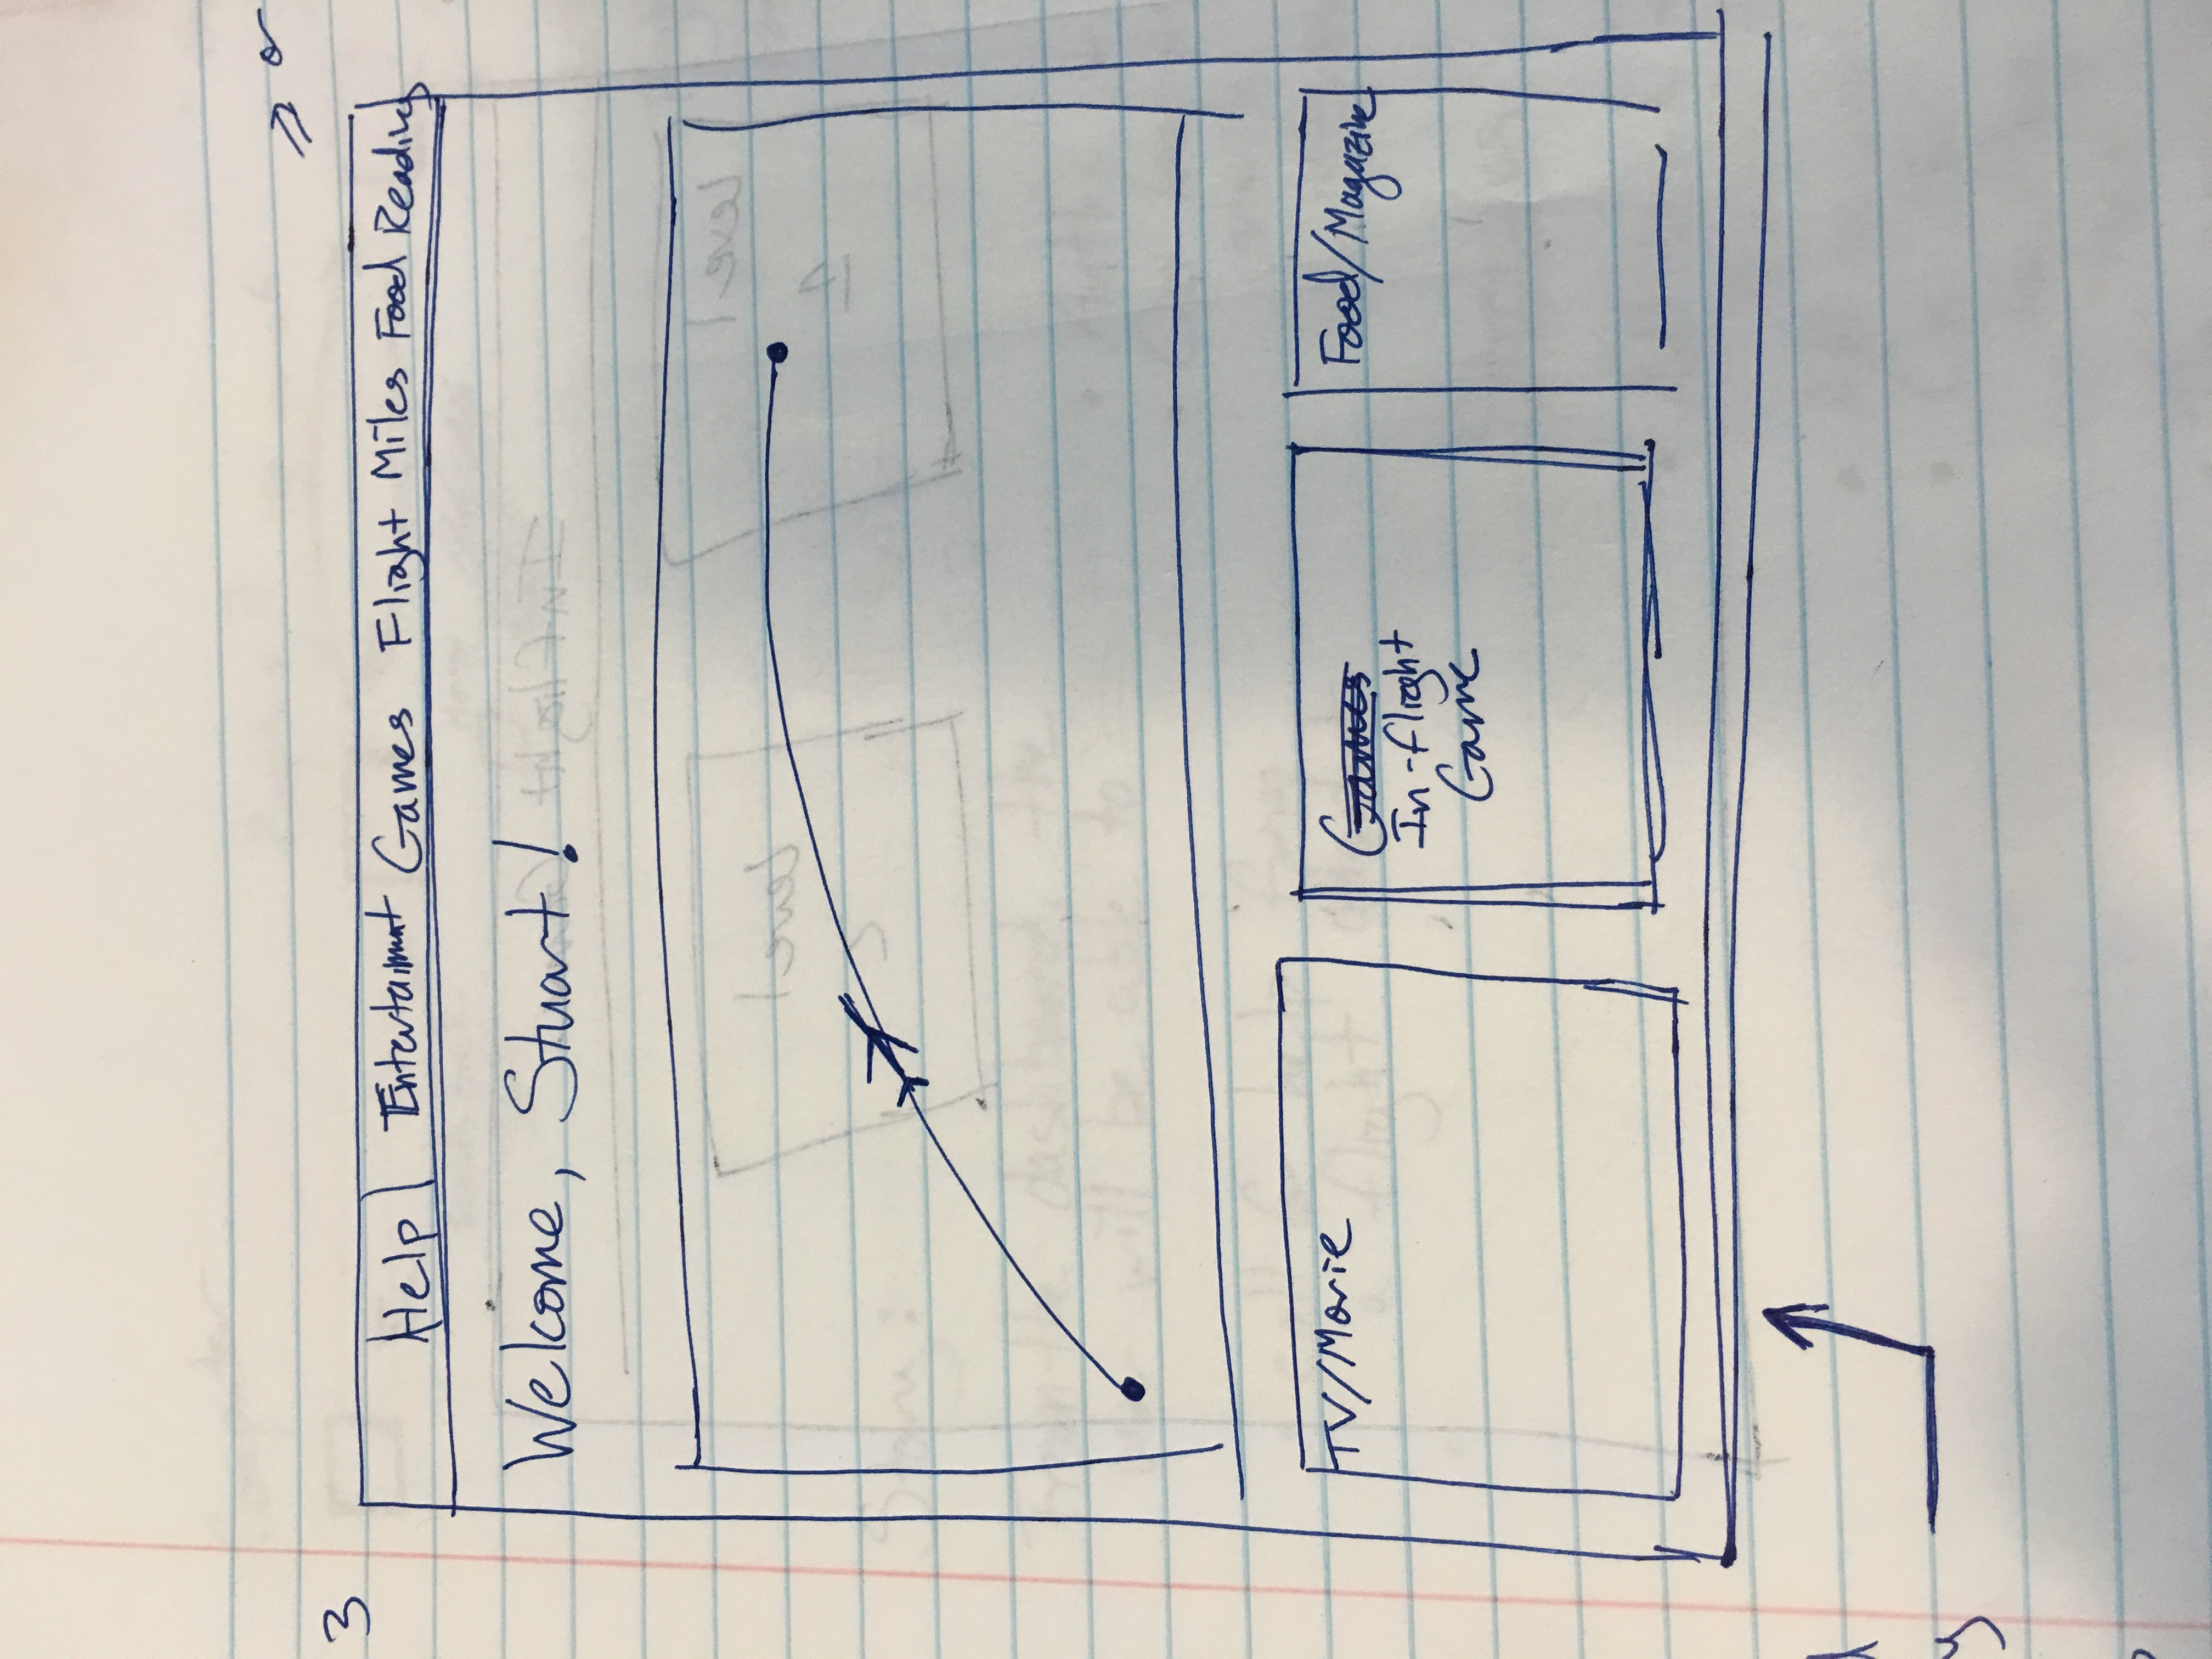 3
Help Entertainment Games Flight Miles Food Reading
Welcome, Stuart!
TV/Movie
Games
In-flight
Game
Food/Magazine